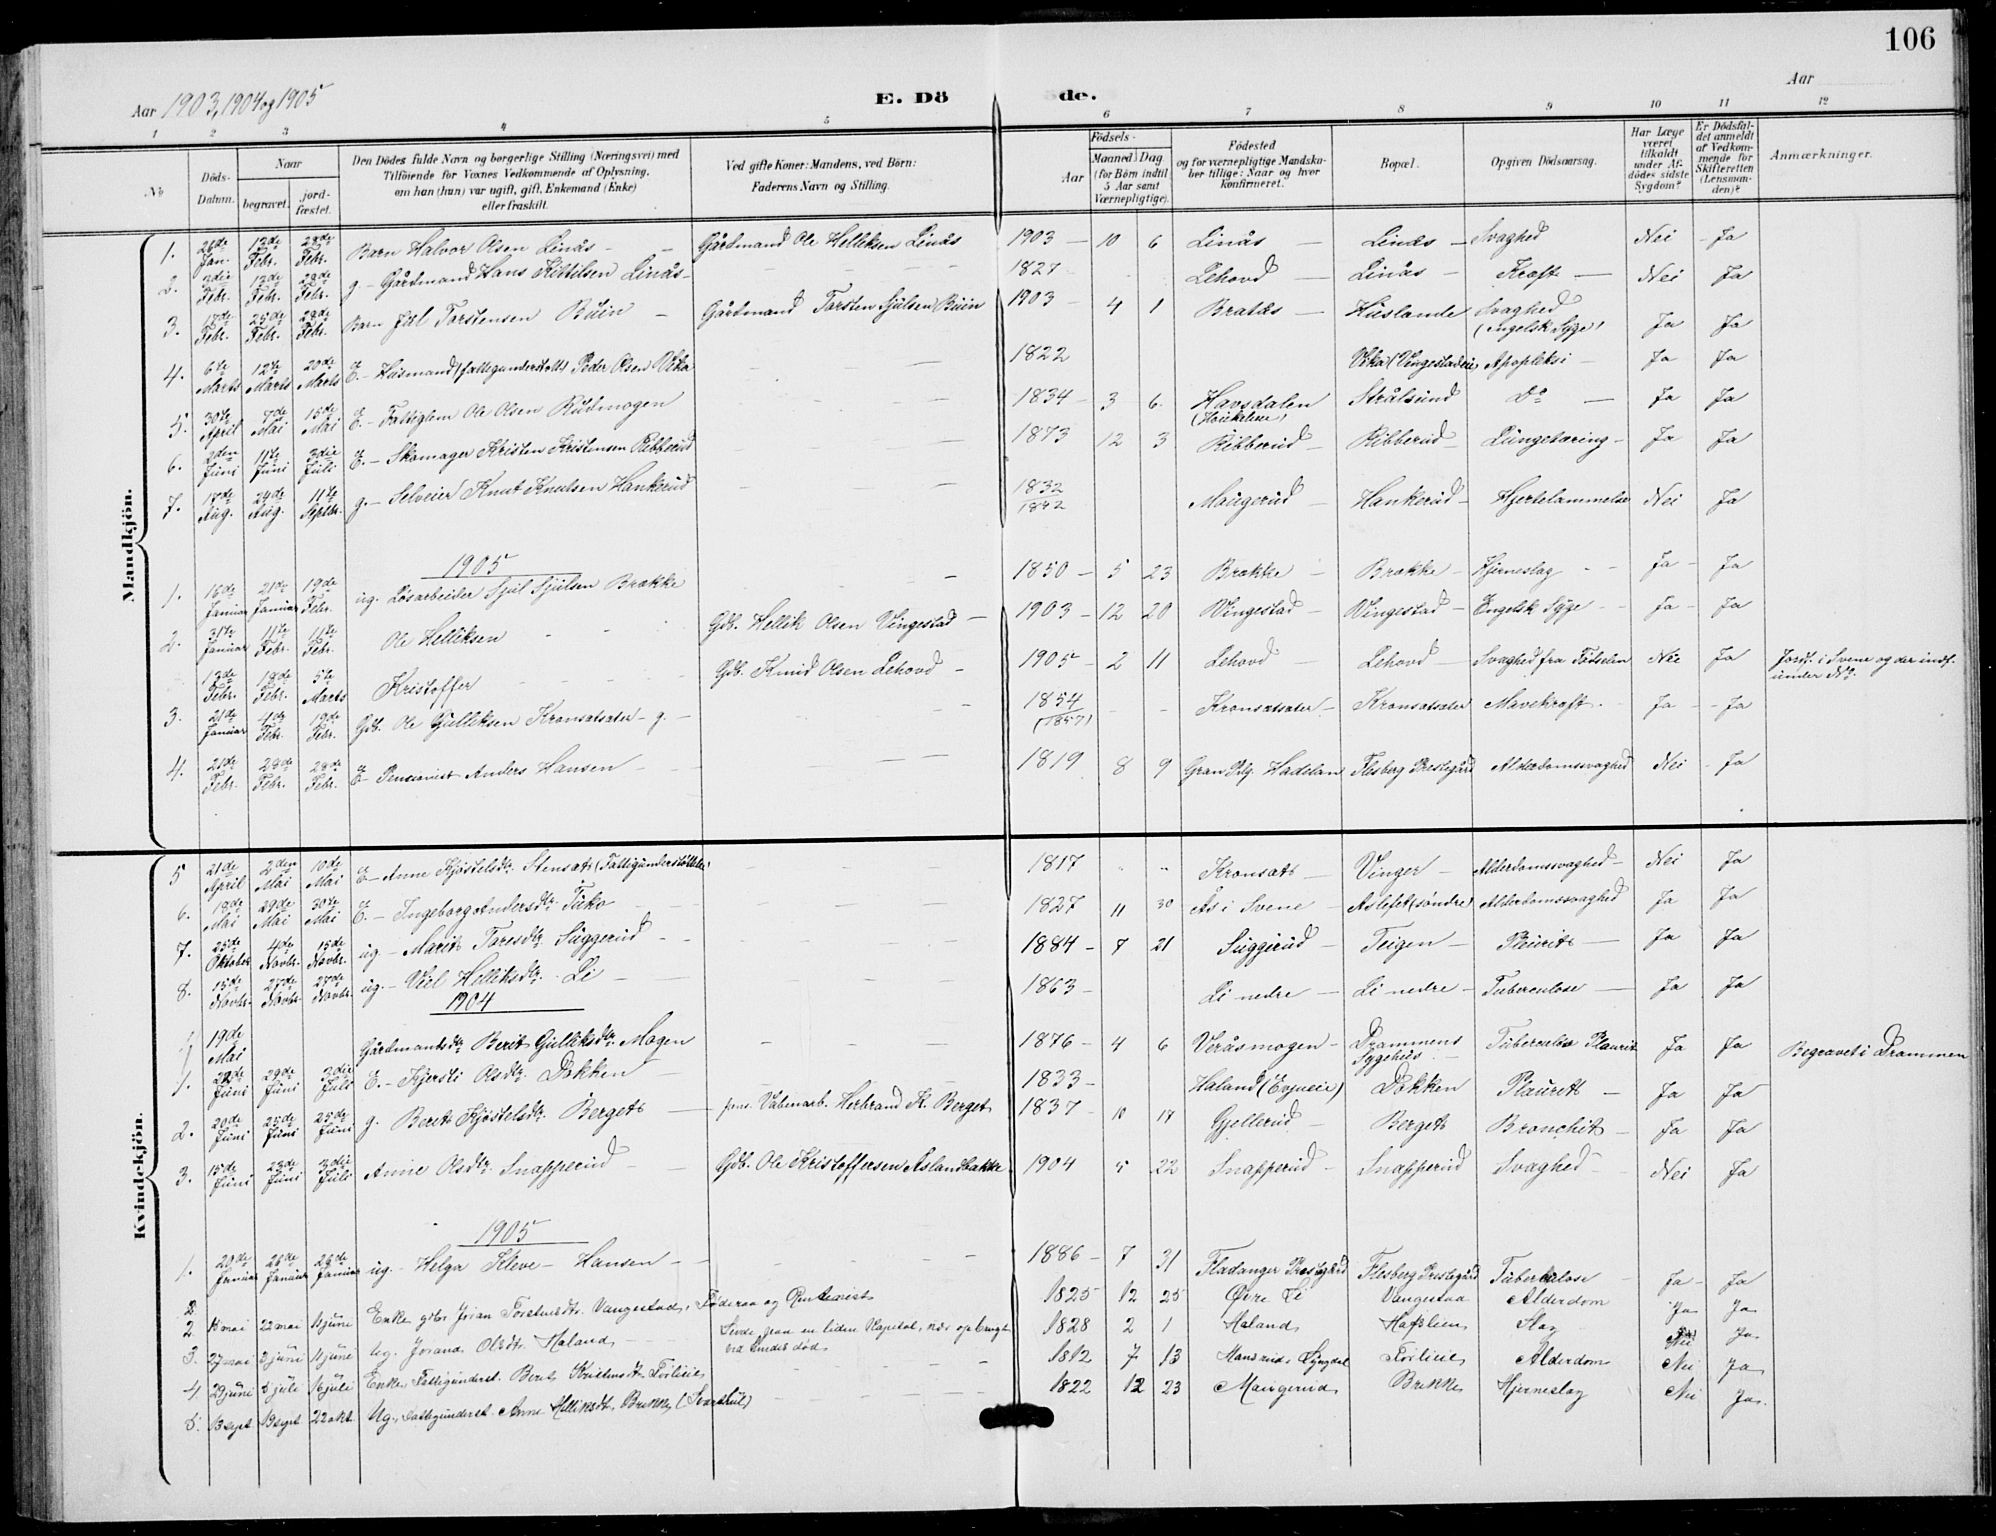 106
Aar 1903, 1904 og 1905
E. Dö de.
Aar
1 2 3 4 5 6 7 8 9 10 11 12
No
Döds-Datum.
Naar
begravet.
jord-fæstet.
Den Dödes fulde Navn og borgerlige Stilling (Næringsvei) med
Tilföiende for Voxnes Vedkommende af Oplysning,
om han (hun) var ugift, gift, Enkemand (Enke)
eller fraskilt.
Ved gifte Koner: Mandens, ved Börn:
Faderens Navn og Stilling.
Födsels-
Aar
Maaned Dag
(for Börn indtil
5 Aar samt
Værnepligtige).
Födested
og for værnepligtige Mandska-
ber tillige: Naar og hvor
konfirmeret.
Bopæl.
Opgiven Dödsaarsag.
Har Læge
været
tilkaldt
under Af-
dödes sidste
Sygdom?
Er Dödsfal-
det anmeldt
af Vedkom-
mende for
Skifteretten
(Lensman-
den)?
Anmærkninger.
Mandkjön.
1. 26de Jan. 13de Febr. 28de Febr. Barn Halvor Olsen Linås - Gårdmand Ole Helliksen Linås 1903 - 10 6 Linås - Linås - Svaghed Nei - Ja
2. 3die Febr. 13de Febr. 28de Febr. g - Gårdmand Hans Kittilsen Linås - 1827 Lehovd - Linås - Kræft - Nei Ja
3. 17de Febr. 25de Febr. 28de Febr. Barn Torstensen Buin - Gårdmand Torsten Sjulsen Buin 1903 - 4 1 Bratås - Huslande Svaghed (engelsk Syge) Ja Ja
4. 6te Marts 12te Marts 20de Marts E. - Husmand (fattigunderstøtt) Peder Olsen Vika 1822 Vika (Vingestadeie) Apopleksi - Ja Ja
5. 30te April 7de Mai 15de Mai E. - Fattiglem Ole Olsen Rudmogen 1834 - 3 6 Havsdalen Strålsund Do - Ja Ja
6. 2den Juni 11te Juni 3die Juli E. - Skomager Kristen Kristensen Ribberud 1873 12 3 Ribberud - Ribberud - Lungetæring - Ja Ja
7. 17de Aug. 24de Aug. 11te Septbr. g. - Selveier Knut Knutsen Hankerud 1832 1842 Maugerud - Hankerud - Hjertelammelse Nei Ja
1905
1. 16de Januar 21de Januar 19de Febr. ug. Løsarbeider Sjul Sjulsen Brække - 1850 - 5 23 Brække - Brække - Hjerneslag - Ja - Ja
2. 31te Januar 11te Febr. 11te Febr. Ole Helliksen - Gdb. Hellik Olsen Vingestad - 1903 - 12 20 Vingestad - Vingestad - Engelsk Syge - Ja - Ja
13de Febr. 18de Febr. 5te Marts Kristoffer - Gdb. Knud Olsen Lehovd - 1905 - 2 11 Lehovd - Lehovd - Svaghed fra Fødselen Nei Ja Jordf. i Svene og der indf. under No.
3. 21de Januar 4de Febr. 19de Febr. Gdb. Ole Gulliksen Kronsatsæter - g. - 1854 (1857) Kronsatsæter - Kronsatsæter Mavekræft - Ja - Ja
4. 21de Febr. 28de Febr. 28de Febr. E - Pensionist Anders Hansen - 1819 8 9 Gran Flesberg Prestegård Alderdomssvaghed Nei - Ja
Kvindekjön.
5 21de April 2den Mai 10de Mai E - Anne Kjøstelsdtr. Stensæt (Fattigunderstøttet) 1817 Kronsæt - Vinger - Alderdomssvaghed - Nei Ja
6. 18de Mai 29de Mai 30te Mai E. - Ingeborg Andersdtr. Tuko 1827 11 30 Ås i Svene - Åslefet (søndre) Alderdomssvaghed Ja Ja
7. 25de Oktober 4de Novbr. 15de Novbr. ug - Marit Toresdtr. Suggerud - 1884 - 7 21 Suggerud - Teigen - Pleurit - Ja Ja
8. 15de Novbr. 27de Novbr. 27de Novbr. ug. - Helliksdtr. Li - 1863 - Li nedre - Li nedre - Tuberculose - Ja Ja
1904
19de Mai Gårdmandsdtr. Berit Gulliksdtr. Mogen 1876 - 4 6 Veråsmogen - Drammens Sygehus - Tuberculøs Pleurit Ja Ja Begravet i Drammen
1. Juni 29de Juni 3die Juli E. - Kjersti Olsdtr. Dokken - 1833 - Haland (Evjueie) Dokken Pleurit - Ja Ja
2. 20de Juni 25de Juni 25de Juni g. Berit Kjøstelsdtr. Berget - pens. Våbenarb. Herbrand K. Berget 1837 - 10 17 Gjellerud - Berget Bronchit - Ja Ja
3. 15de Juni 23de Juni 3die Juli Anne Olsdtr. Snapperud - Gdb. Ole Kristoffersen Aslandbakke 1904 5 22 Snapperud - Snapperud Svaghed - Nei Ja
1905
1. 20de Januar 28de Januar 28de Januar ug. - Helga Kleve - Hansen - 1886 - 7 31 Fladanger Prestegård Flesberg Prestegård Tuberkulose Ja - Ja
2 mai 22 mai 11 juni Enke Joran Torstensdtr. Vangestad, Føderaa og Rentenist 1825 12 25 Øvre Li Vangestad Alderdom Ja Ja
3. 27 mai 3 juni 11 juni Ug. Jorand Olsdtr. Haland, Levde paa en liden Kapital, nær opbrugt ved hendes død 1828 2 1 Haland Hafslien Slag Nei Ja
4 29 juni 8 juli 16 juli Enke. Fattigunderst. Berit 1812 7 13 Lyngdal Alderdom Nei Ja
5. 13 sept. 19 sept. 22 okt. Ug., Fattigunderst. Anne Helliksdt. Brække (Svarthul) 1822 12 23 Maugerud Brekke Hjerneslag Nei Ja